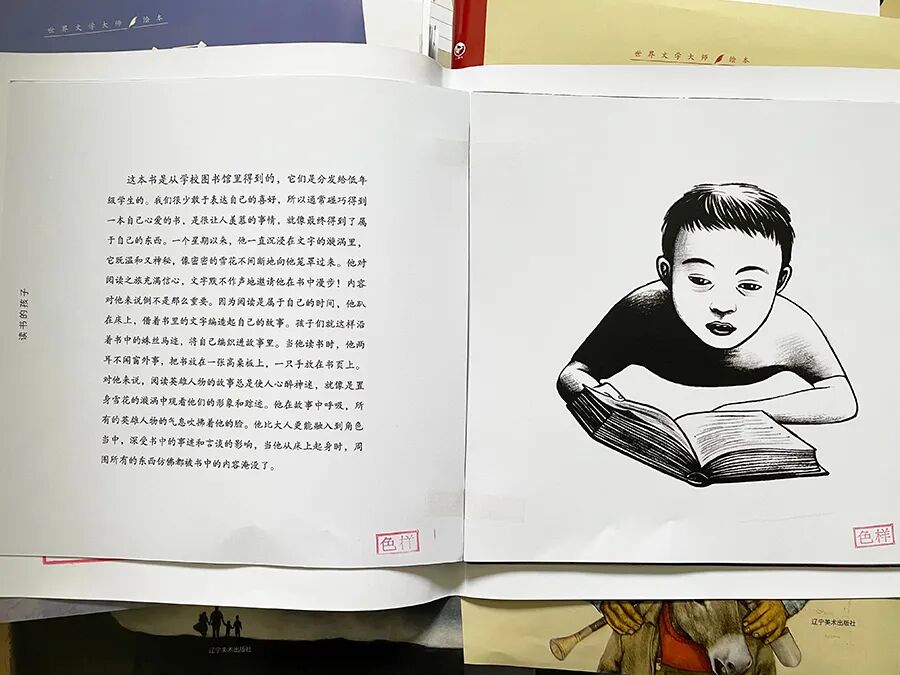 世界文学大师 绘本
世界文学大师 绘本
读书的孩子
这本书是从学校图书馆里得到的，它们是分发给低年
级学生的。我们很少敢于表达自己的喜好，所以通常碰巧得到
一本自己心爱的书，是很让人羡慕的事情，就像最终得到了属
于自己的东西。一个星期以来，他一直沉浸在文字的漩涡里，
它既温和又神秘，像密密的雪花不间断地向他笼罩过来。他对
阅读之旅充满信心，文字默不作声地邀请他在书中漫步！内容
对他来说倒不是那么重要。因为阅读是属于自己的时间，他趴
在床上，借着书里的文字编造起自己的故事。孩子们就这样沿
着书中的蛛丝马迹，将自己编织进故事里。当他读书时，他两
耳不闻窗外事，把书放在一张高桌板上，一只手放在书页上。
对他来说，阅读英雄人物的故事总是使人心醉神迷，就像是置
身雪花的漩涡中观看他们的形象和踪迹。他在故事中呼吸，所
有的英雄人物的气息吹拂着他的脸。他比大人更能融入到角色
当中，深受书中的事迹和言谈的影响，当他从床上起身时，周
围所有的东西仿佛都被书中的内容淹没了。
色样
色样
辽宁美术出版社
辽宁美术出版社